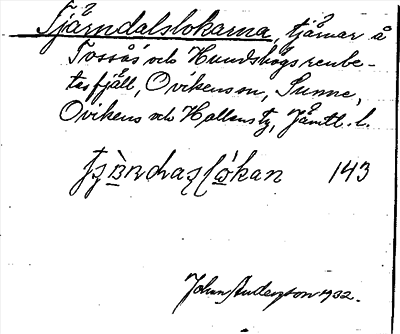 Tjärndalslokarna, tjärnar å
Tossås och Hundshögs renbe-
tesfjäll, Ovikens sn, Sunne,
Ovikens och Hallens tg, Jämtl. l.
143
Johan Anderson 1932.